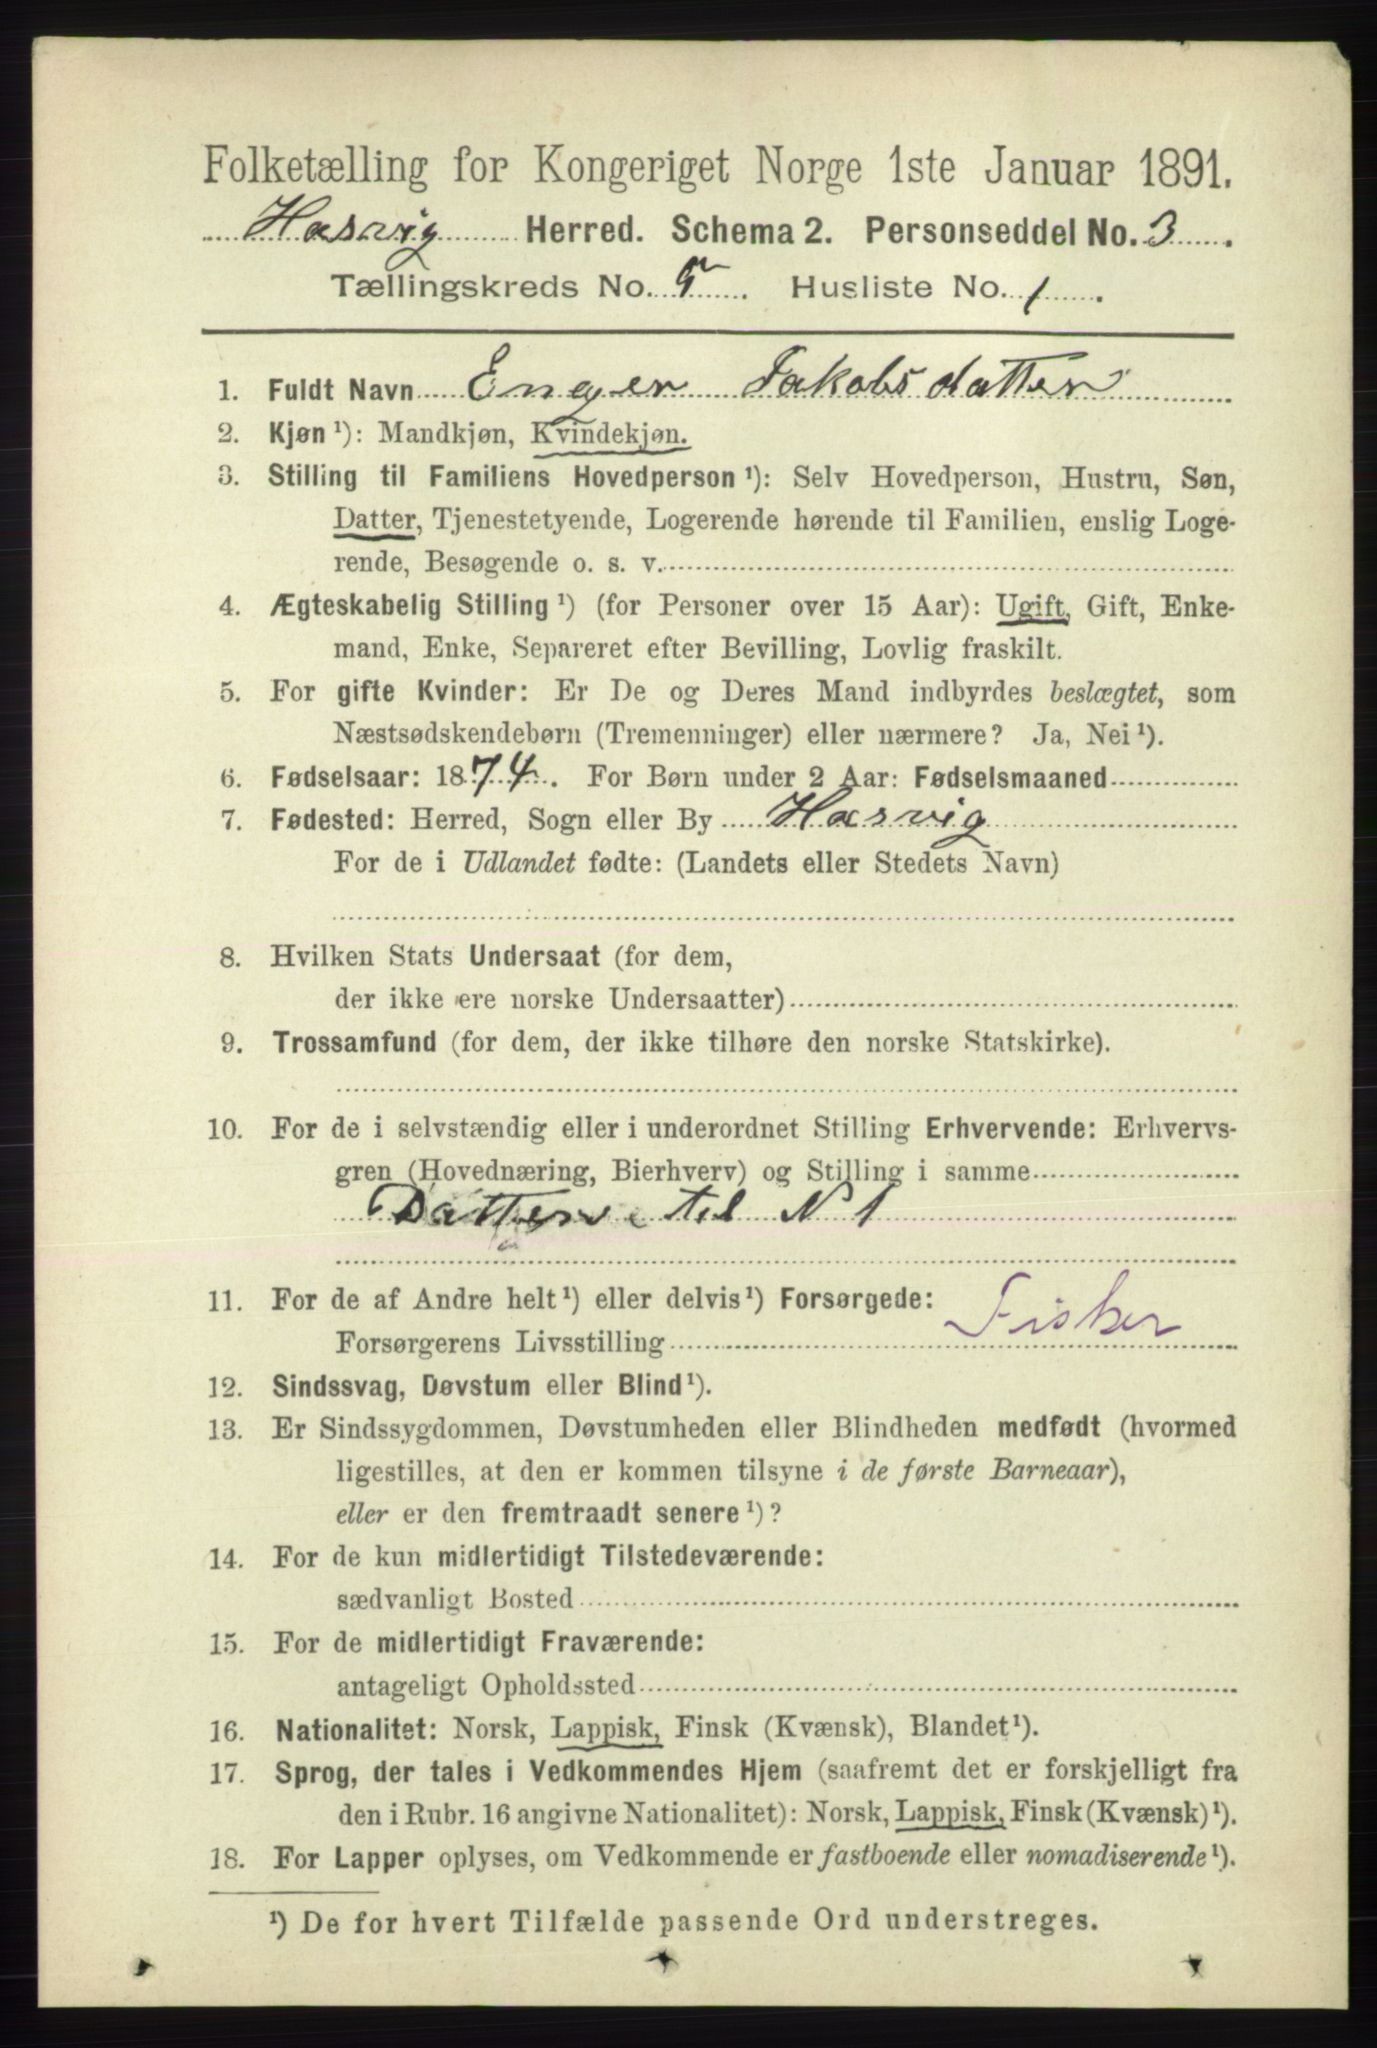 Folketælling for Kongeriget Norge 1ste Januar 1891.
Hasvig Herred. Schema 2. Personseddel No. 3.
Tællingskreds No. 5. Husliste No. 1.
1. Fuldt Navn Enger Jakobsdatter
2. Kjøn ¹): Mandkjøn, Kvindekjøn.
3. Stilling til Familiens Hovedperson ¹): Selv Hovedperson, Hustru, Søn,
Datter, Tjenestetyende, Logerende hørende til Familien, enslig Loge-
rende, Besøgende o. s. v.
4. Ægteskabelig Stilling ¹) (for Personer over 15 Aar): Ugift, Gift, Enke-
mand, Enke, Separeret efter Bevilling, Lovlig fraskilt.
5. For gifte Kvinder: Er De og Deres Mand indbyrdes beslægtet, som
Næstsødskendebørn (Tremenninger) eller nærmere? Ja, Nei ¹).
6. Fødselsaar: 1874. For Børn under 2 Aar: Fødselsmaaned
7. Fødested: Herred, Sogn eller By Hasvig
For de i Udlandet fødte: (Landets eller Stedets Navn)
8. Hvilken Stats Undersaat (for dem,
der ikke ere norske Undersaatter)
9. Trossamfund (for dem, der ikke tilhøre den norske Statskirke).
10. For de i selvstændig eller i underordnet Stilling Erhvervende: Erhvervs-
gren (Hovednæring, Bierhverv) og Stilling i samme
Datter til N 1
11. For de af Andre helt ¹) eller delvis ¹) Forsørgede: Fisker
Forsørgerens Livsstilling
12. Sindssvag, Døvstum eller Blind ¹).
13. Er Sindssygdommen, Døvstumheden eller Blindheden medfødt (hvormed
ligestilles, at den er kommen tilsyne i de første Barneaar),
eller er den fremtraadt senere ¹)?
14. For de kun midlertidigt Tilstedeværende:
sædvanligt Bosted
15. For de midlertidigt Fraværende:
antageligt Opholdssted
16. Nationalitet: Norsk, Lappisk, Finsk (Kvænsk), Blandet ¹).
17. Sprog, der tales i Vedkommendes Hjem (saafremt det er forskjelligt fra
den i Rubr. 16 angivne Nationalitet): Norsk, Lappisk, Finsk (Kvænsk) ¹).
18. For Lapper oplyses, om Vedkommende er fastboende eller nomadiserende ¹).
¹) De for hvert Tilfælde passende Ord understreges.